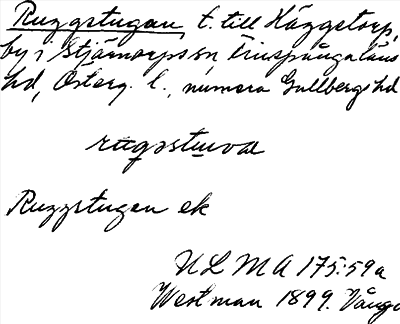 Ruggstugan, t. till Häggstorp,
by i Stjärnorps sn, Finspångaläns
hd, Österg. l., numera Gullbergs hd
rugstuva
Ruggstugen ek
ULMA 175:59a
Westman 1899. Vånga